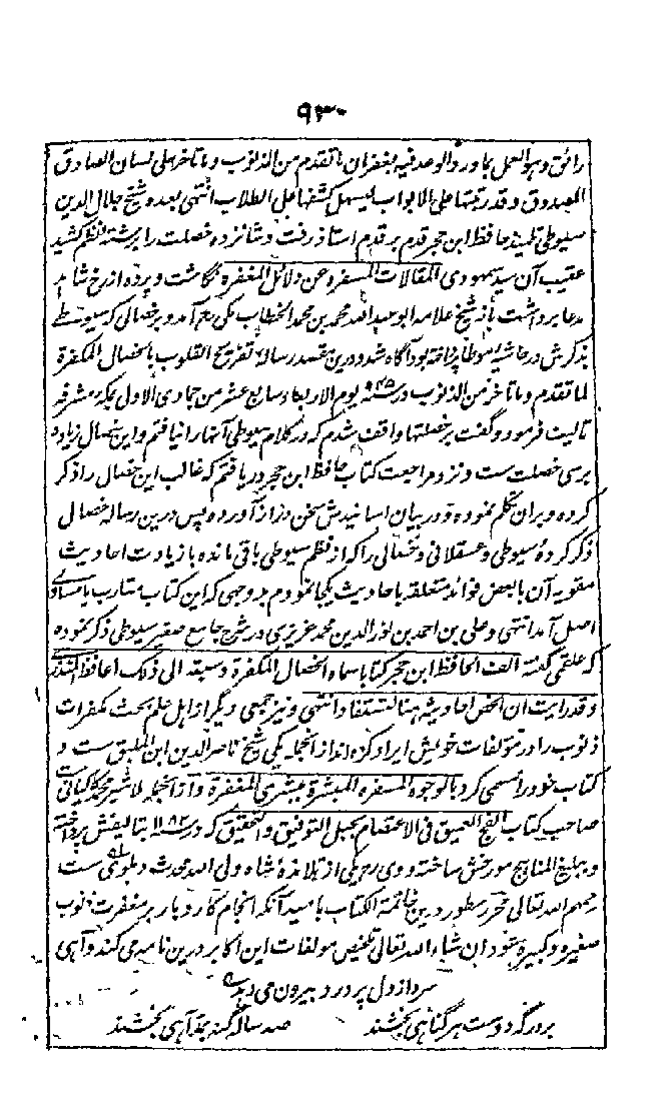 ۹۳۰
رائق وهو العمل بما ورد الوعد فيه بغفران ما تقدم من الذنوب وما تاخر على لسان الصادق
المصدوق وقد رتبتها على الابواب ليسهل كشفها على الطلاب انتهى بعده شیخ جلال الدین
سیوطی تلمیذ حافظ ابن حجر قدم بر قدم استاذ رفت و شانزده خصلت را برشته نظم کشید
عقیب آن سید سمهودی المقالات المسفره عن دلائل المغفره نگاشت و پرده از رخ شاہد
مدعا برداشت باز شیخ علامه ابو عبد الله محمد بن محمد الخطاب مکی آمد و بر خصالی که سیوطے
بذکرش در حاشیه موطا پرداخته بود آگاه شد و درین مقصد رساله تفریح القلوب بالخصال المکفرة
لما تقدم وما تاخر من الذنوب در ۹۴۵ یوم الاربعاء سابع عشر من جمادی الاول بمکه مشرفه
تالیف فرمود و گفت بر خصلتها واقف شدم که در کلام سیوطی آنها را نیافتم و این خصال زیاده
برسی خصلت ست و نزد مراجعت کتاب حافظ ابن حجر دریافتم که غالب این خصال را ذکر
کرده و بران تکلم نموده و در بیان اسانیدش سخن دراز آورده پس درین رساله خصال
ذکر کردهٔ سیوطی و عسقلانی و خصالی را که از نظم سیوطی باقی مانده با زیادت احادیث
مقویه آن با بعض فوائد متعلقه باحادیث یکجا نمودم بر وجهی که این کتاب
اصل آمد انتهی و علی بن احمد بن نور الدین محمد عزیزی در شرح جامع صغیر سیوطی ذکر نموده
که علقمی گفته الف الحافظ ابن حجر کتابا سماه الخصال المکفرة وسبقه الی ذلک الحافظ المنذری
وقد رایت ان الخص احادیثه هنا لتستفاد انتهی و نیز جمعی دیگر از اهل علم بحث مکفرات
ذنوب را در مؤلفات خویش ایراد کرده اند از انجمله یکی شیخ ناصر الدین ابن الملیق ست و
کتاب خود را مسمی کرد بالوجوه المسفره المبشرة بمغفرة و از انجمله ملا شیر محمد
صاحب کتاب الفج العمیق فی الاعتصام بحبل التوفیق والتحقیق که در ۱۱۸۲ بتالیفش پرداخته
و ببلیغ المناهج مورخش ساخته و وی رح یکی از تلامذهٔ شاه ولی الله محدث دهلوی ست
رحمهم الله تعالی محرر سطور درین خاتمة الکتاب بامید آنکه انجام کار و بار بر مغفرت ذنوب
صغیره و کبیره شود ان شاء الله تعالی تلخیص مولفات این اکابر درین نامه می کند و آهی
سرد از دل پر درد بیرون می دهد
بر درگه دوست هر گناهی بخشند صد ساله گنه بعذر آهی بخشند